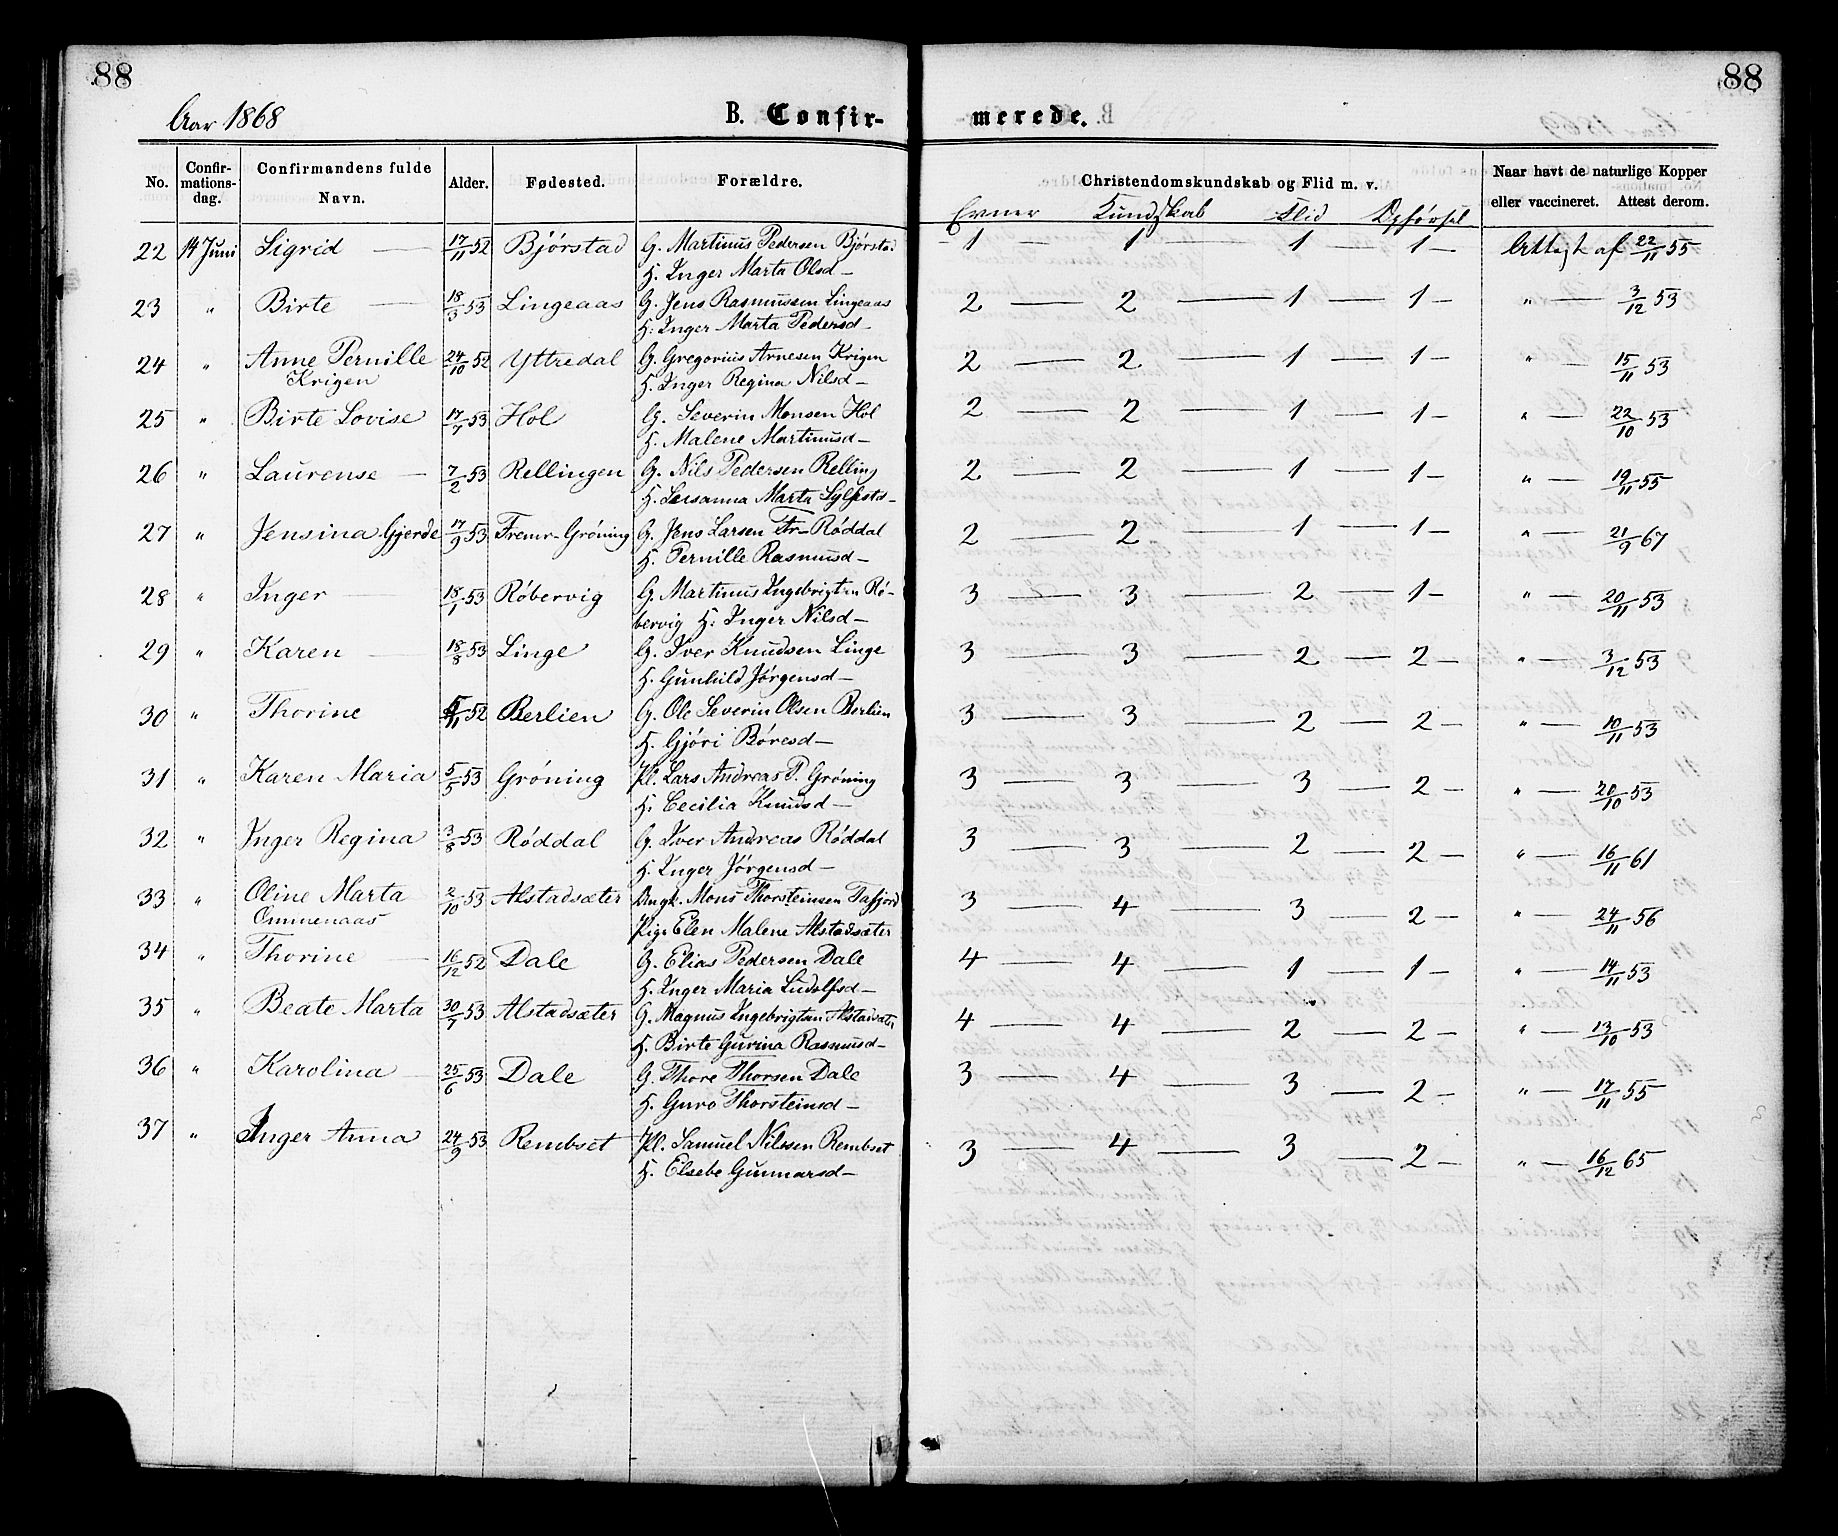 88 88
Aar 1868 B. Confir- merede.
No. Confir-mations-dag. Confirmandens fulde Navn. Alder. Fødested. Forældre. Christendomskundskab og Flid m. v. Naar havt de naturlige Kopper eller vaccineret. Attest derom.
Evner Kundskab Flid Opførsel
22 14 Juni Sigrid — 17/11 52 Bjórstad G. Martinus Pedersen Bjórstad 1 — 1 — 1 — 1 — Attest af 22/11 55
H. Inger Marta Olsd —
23 " Birte — 18/3 53 Lingeaas G. Jens Rasmussen Lingeaas 2 — 2 — 1 — 1 — " — 3/12 53
H. Inger Marta Pedersd —
24 " Anne Pernille 24/10 52 Yttredal G. Gregorius Arnesen Krigen 2 — 2 — 1 — 1 — " — 15/11 53
Krigen H. Inger Regina Nilsd —
25 " Birte Lovise 17/7 53 Hol G. Severin Monsen Hol 2 — 2 — 1 — 1 — " — 22/10 53
H. Malene Martinusd —
26 " Laurense — 7/2 53 Rellingen G. Nils Pedersen Relling 2 — 2 — 1 — 1 — " — 19/11 55
H. Susanna Marta Sylfestd —
27 " Jensina Gjerde 17/9 53 Fremr-Gróning G. Jens Larsen Fr-Róddal 2 — 2 — 1 — 1 — " — 21/9 67
H. Pernille Rasmusd —
28 " Inger — 18/1 53 Róbervig G. Martinus Ingebrigtsn Ró- 3 — 3 — 2 — 1 — " — 20/11 53
bervig H. Inger Nilsd —
29 " Karen — 18/8 53 Linge G. Iver Knudsen Linge 3 — 3 — 2 — 2 — " — 3/12 53
H. Gunhild Jórgensd —
30 " Thorine /11 52 Berlien G. Ole Severin Olsen Berlien 3 — 3 — 2 — 2 — " — 10/11 53
H. Gjóri Bóresd —
31 " Karen Maria 5/5 53 Gróning Pl. Lars Andreas P. Gróning 3 — 3 — 3 — 2 — " — 20/10 53
H. Cecilia Knudsd —
32 " Inger Regina 3/8 53 Róddal G. Iver Andreas Róddal 3 — 3 — 2 — 2 — " — 16/11 61
H. Inger Jórgensd —
33 " Oline Marta 2/10 53 Alstadsæter Ungk. Mons Thorsteinsen Tafjord 3 — 4 — 3 — 2 — " — 24/11 56
Ommenaas Pige Elen Malene Alstadsæter
34 " Thorine — 16/12 52 Dale G. Elias Pedersen Dale 4 — 4 — 1 — 1 — " — 14/11 53
H. Inger Maria Ludolfsd —
35 " Beate Marta 30/7 53 Alstadsæter G. Magnus Ingebrigtsn Alstadsæter 4 — 4 — 2 — 2 — " — 13/10 53
H. Birte Gurina Rasmusd —
36 " Karolina — 25/6 53 Dale G. Thore Thorsen Dale 3 — 4 — 3 — 2 — " — 17/11 55
H. Guro Thorsteinsd —
37 " Inger Anna 24/9 53 Rembset Pl. Samuel Nilssen Rembset 3 — 4 — 3 — 2 — " — 16/12 65
H. Elsebe Gunnarsd —